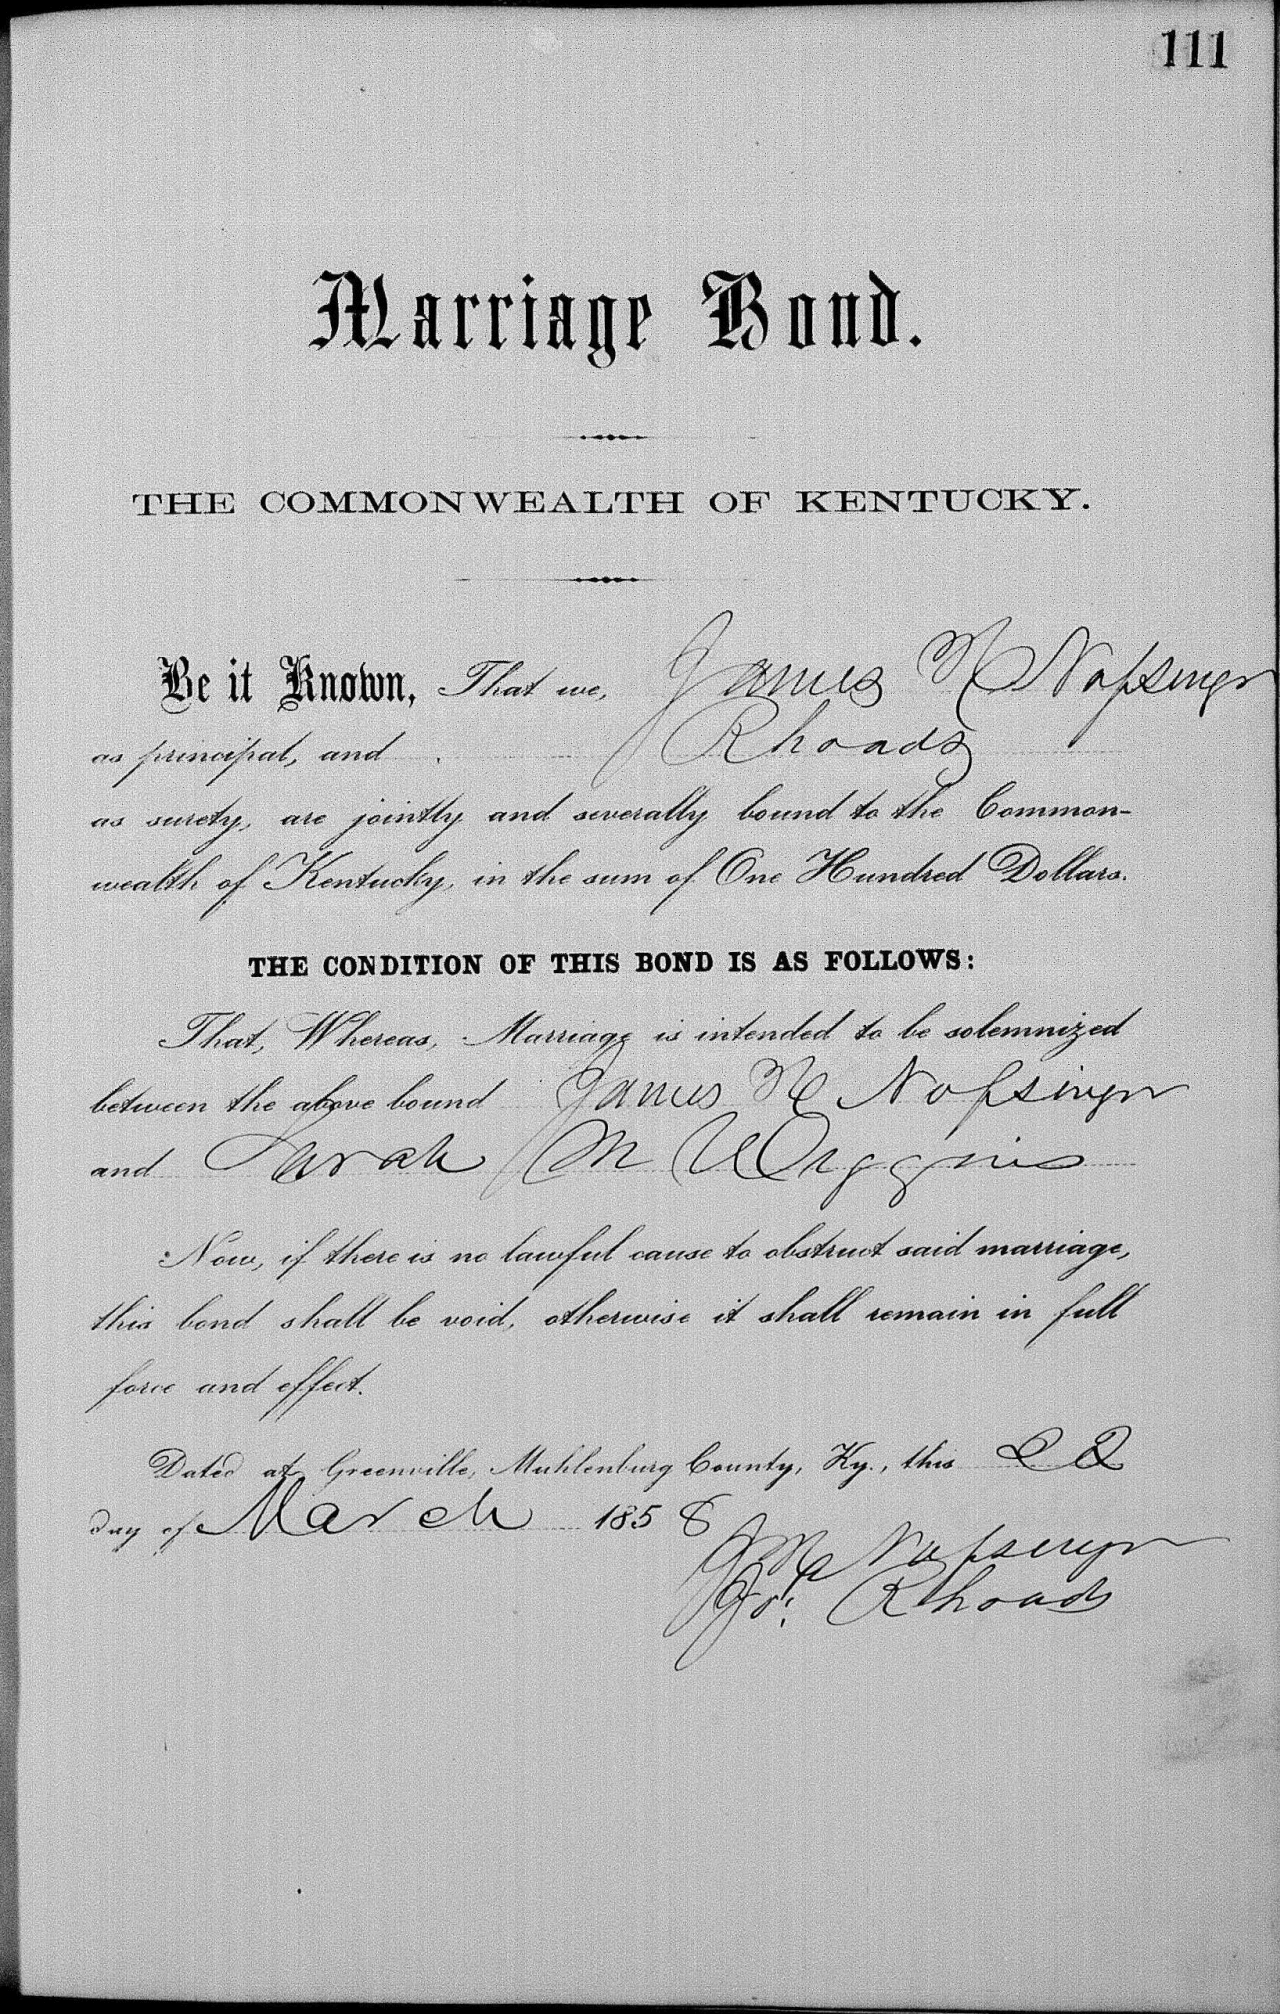 111
Marriage Bond.
THE COMMONWEALTH OF KENTUCKY.
Be it Known, That we, James Nofsinger
as principal, and Rhoads
as surety, are jointly and severally bound to the Common-
wealth of Kentucky, in the sum of One Hundred Dollars.
THE CONDITION OF THIS BOND IS AS FOLLOWS:
That, Whereas, Marriage is intended to be solemnized
between the above bound James Nofsinger
and Sarah M Wiggins
Now, if there is no lawful cause to obstruct said marriage,
this bond shall be void, otherwise it shall remain in full
force and effect.
Dated at Greenville, Muhlenburg County, Ky., this 22
day of March 1858
Nofsinger
Rhoads